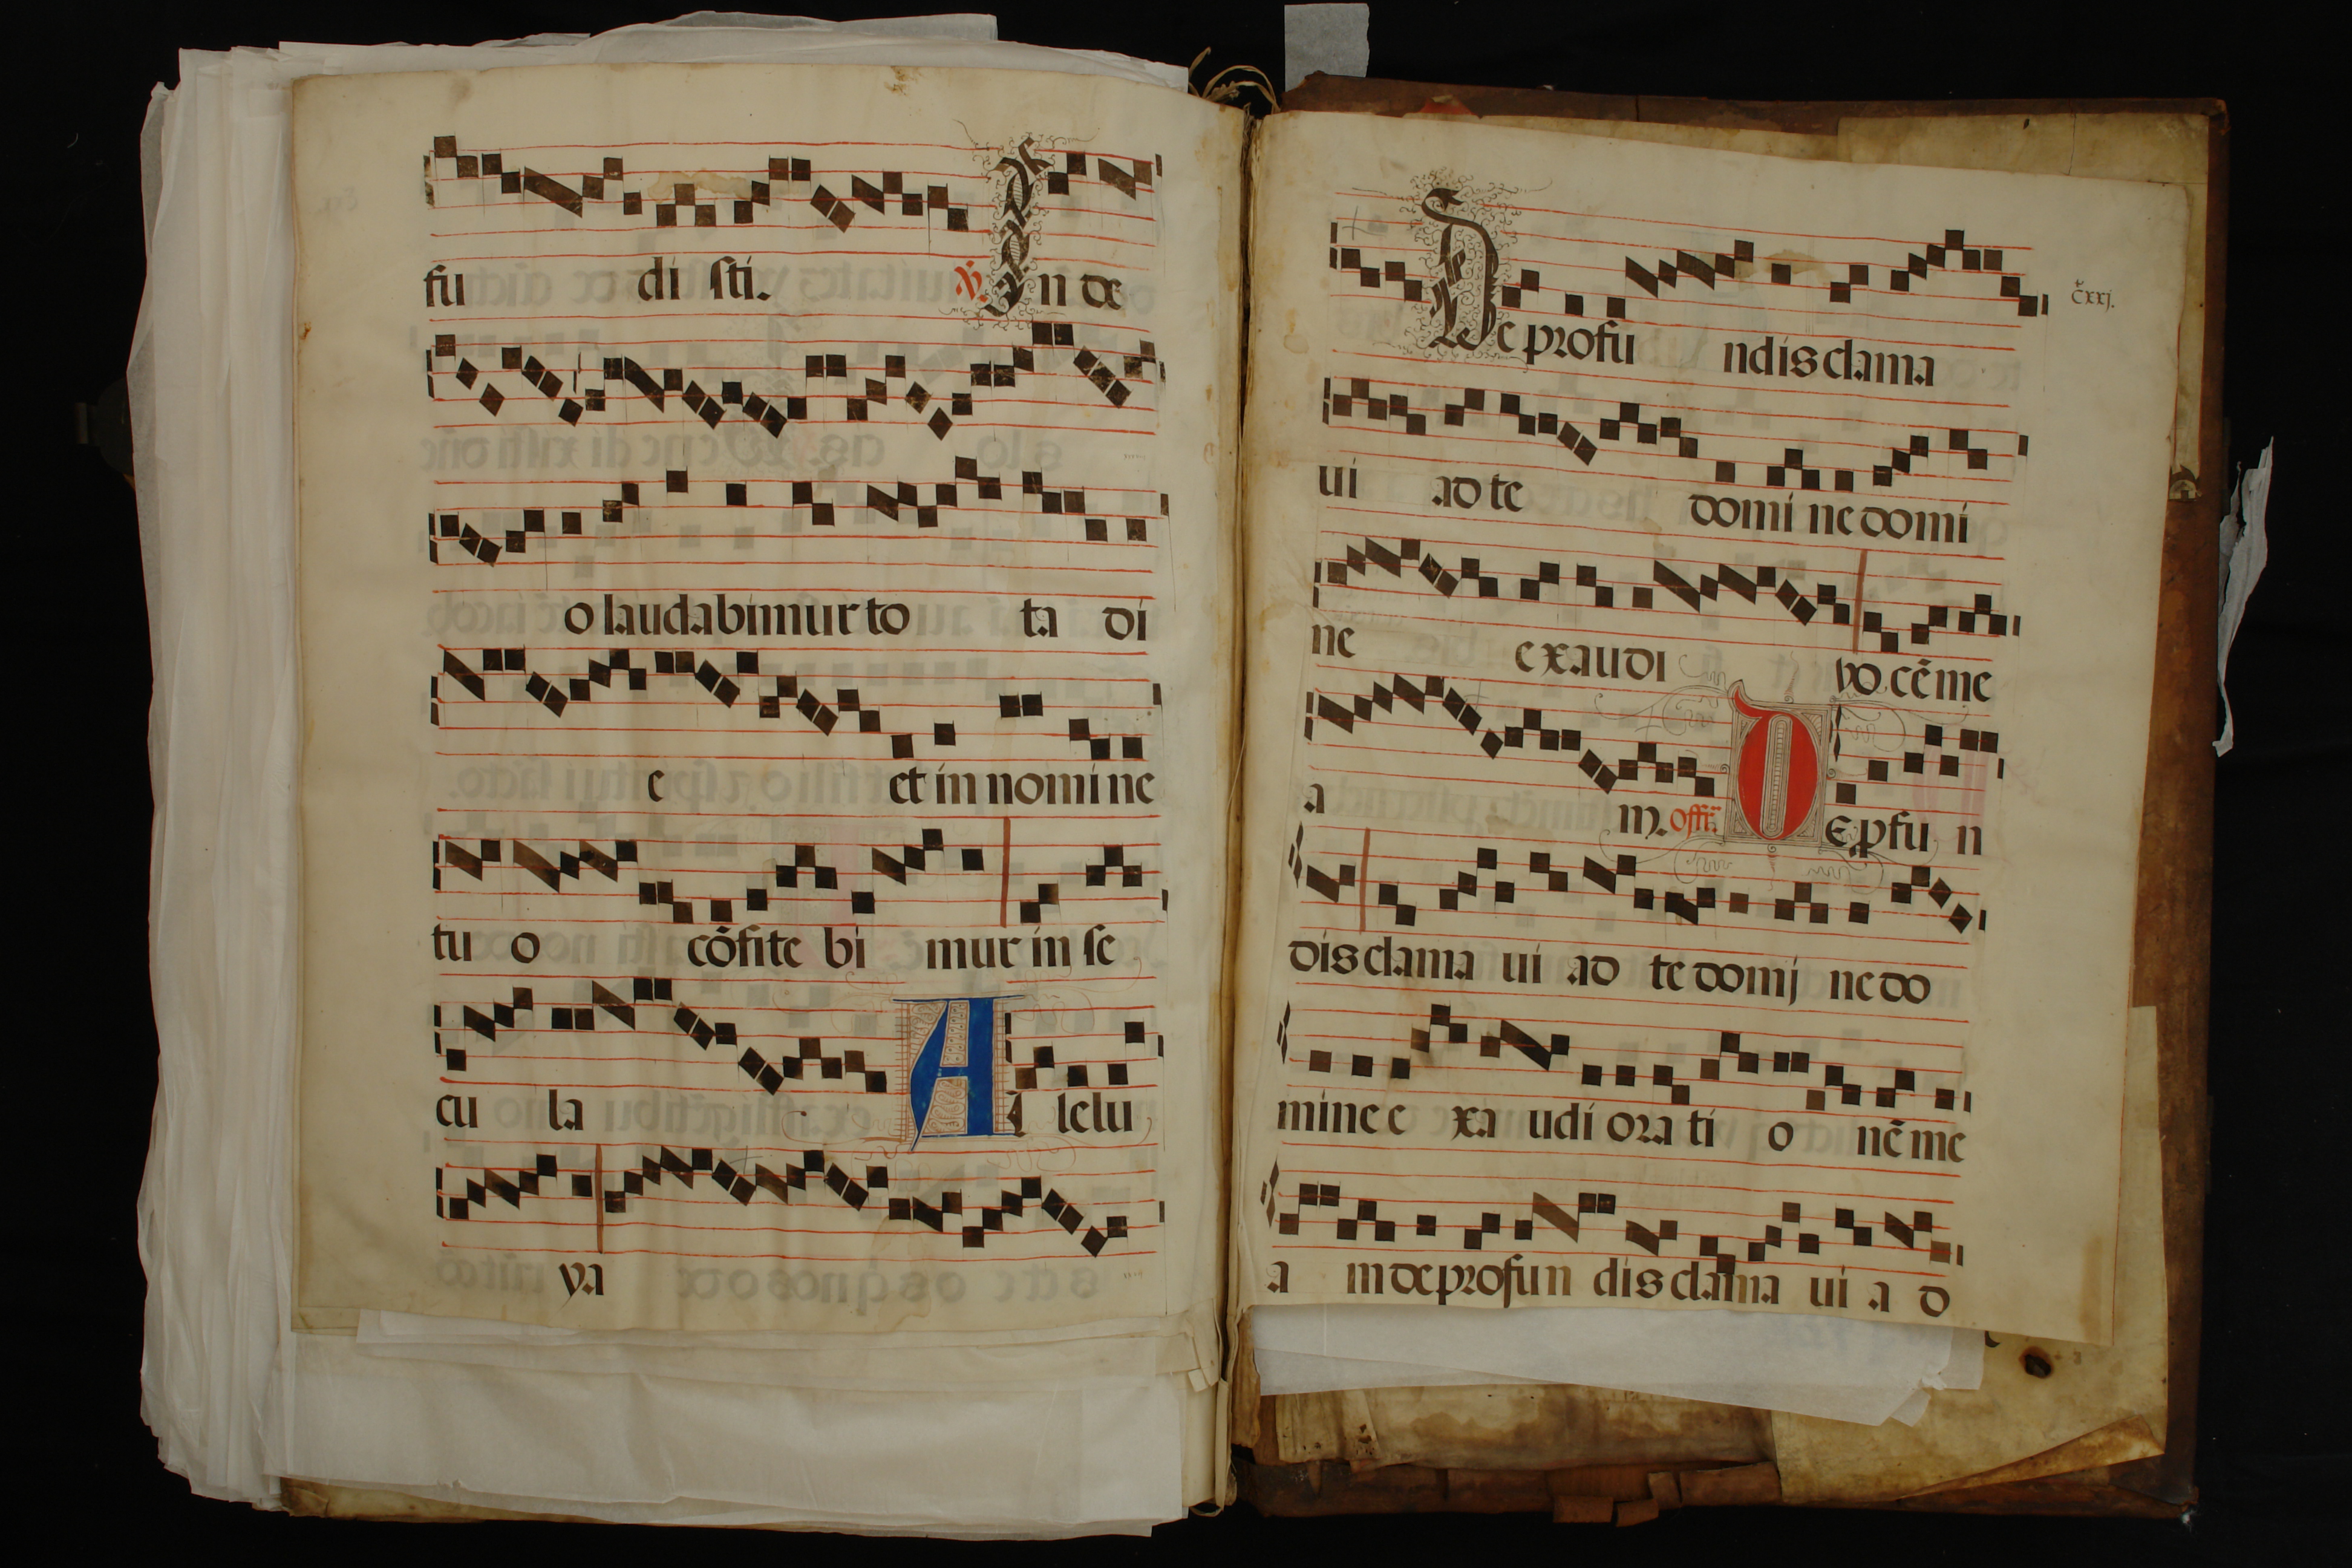 fu di sti. ℣. In de
o laudabimur to ta di
e et in nomi ne
tu o cōfite bi mur in se
cu la Al lelu
ya
cxxj.
De profu ndis clama
ui ad te domi ne domi
ne exaudi vo cē me
a m. offr̄. De ꝓfu n
dis clama ui ad te domj ne do
mine e xa udi ora ti o nē me
a m de profun dis clama ui a d